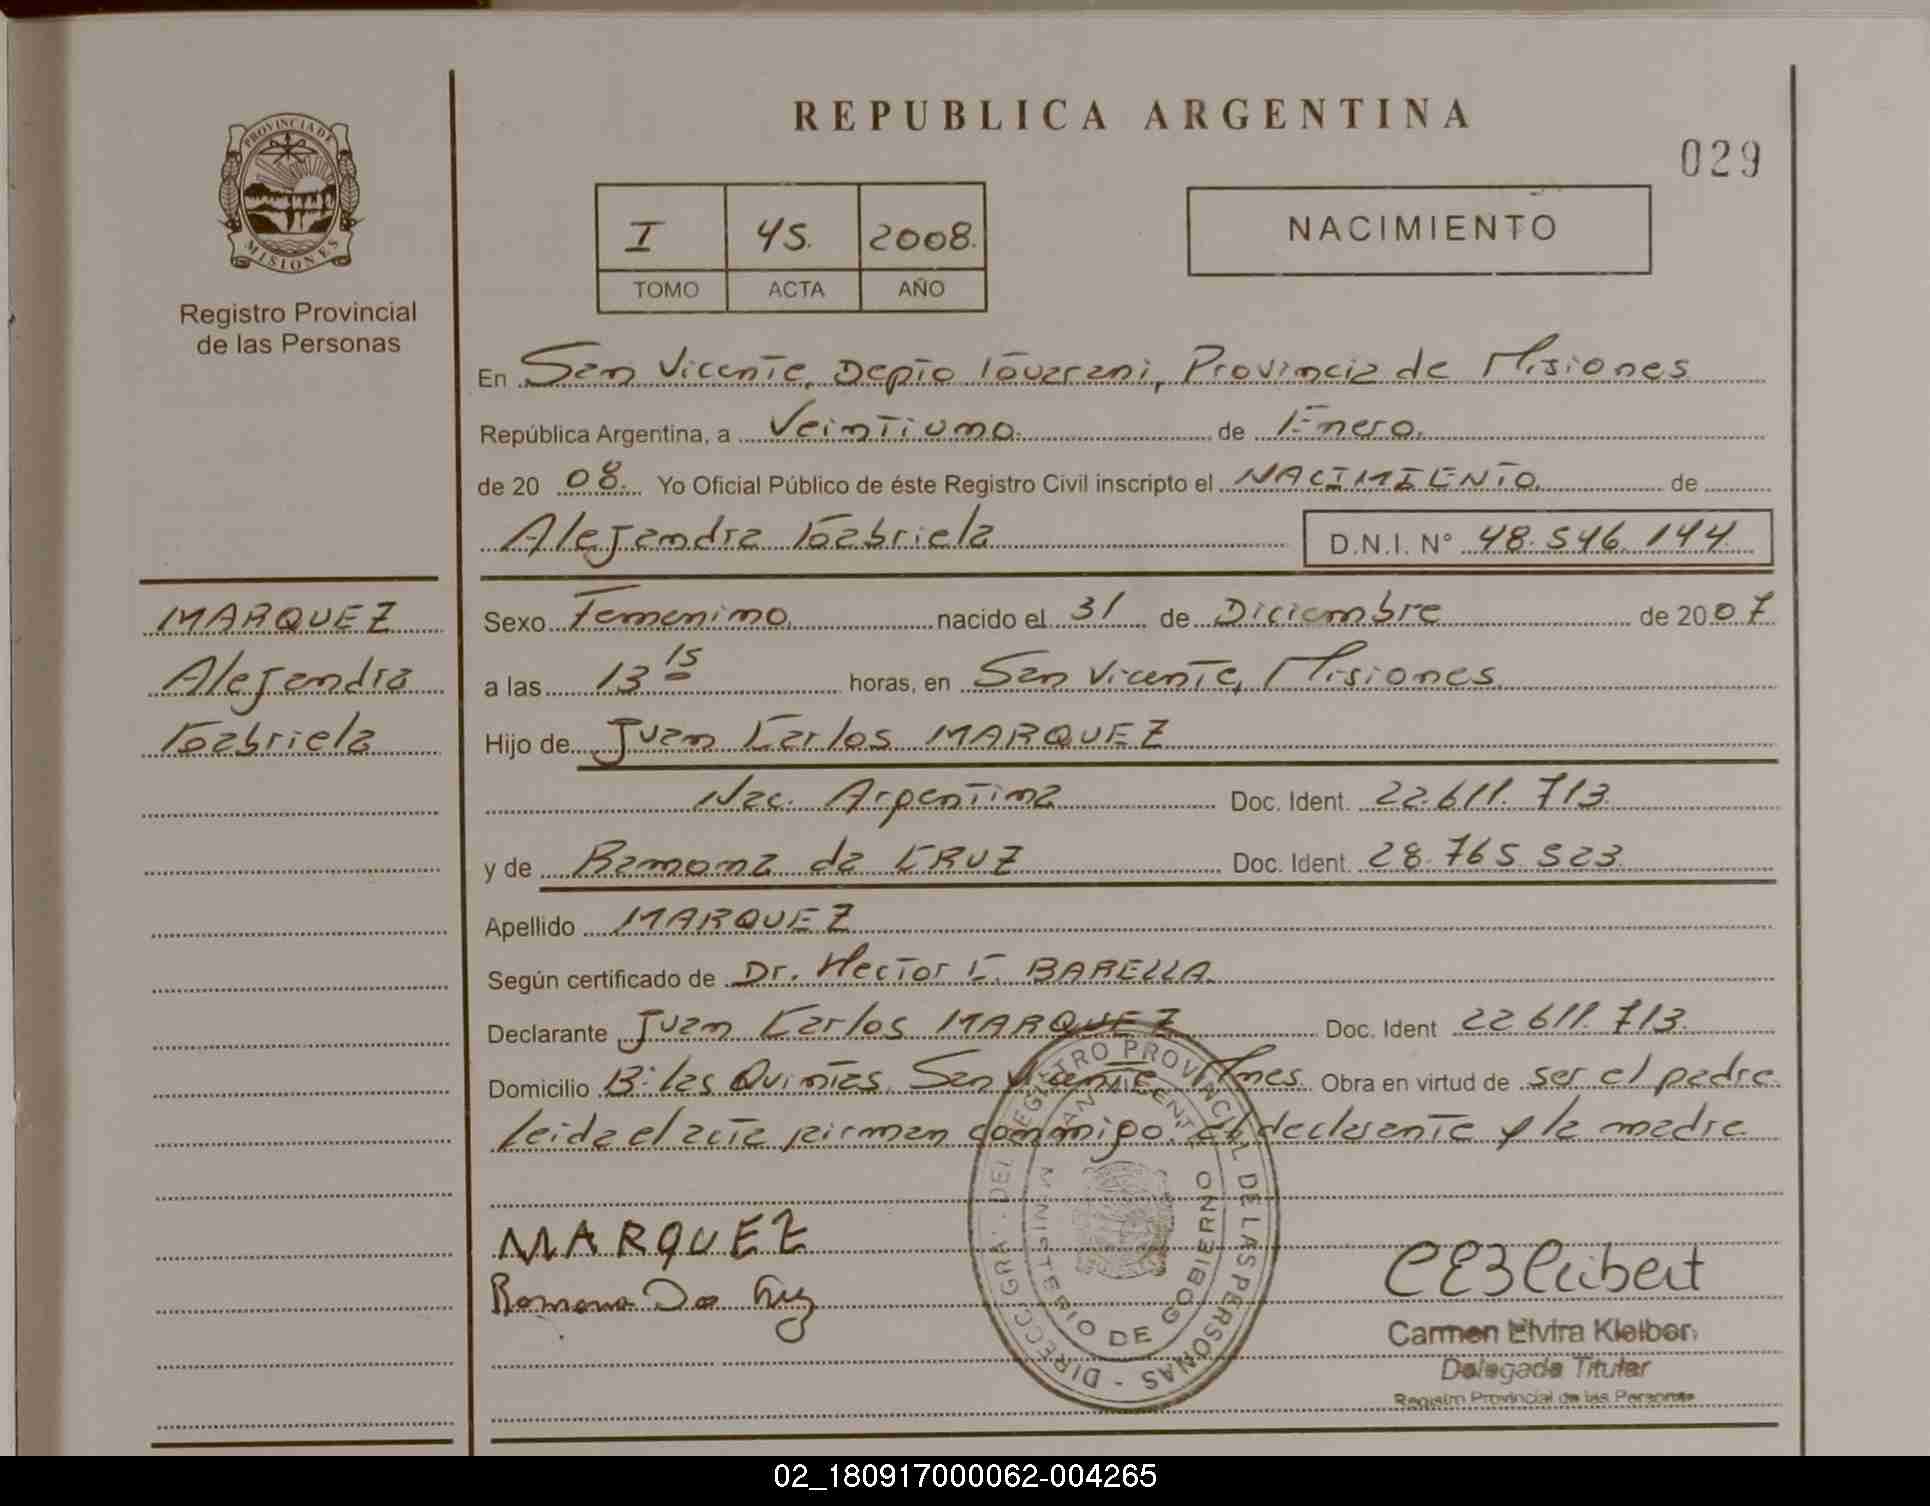 REPUBLICA ARGENTINA
029
PROVINCIA DE
MISIONES
Registro Provincial
de las Personas
I 45. 2008.
TOMO ACTA AÑO
NACIMIENTO
En San Vicente, Depto Guarani, Provincia de Misiones
República Argentina, a Veintiuno. de Enero.
de 20 08. Yo Oficial Público de éste Registro Civil inscripto el NACIMIENTO de
Alejandra Gabriela D.N.I. N° 48.546.144
MARQUEZ
Alejandra
Gabriela
Sexo Femenino nacido el 31 de Diciembre de 2007
a las 13 15 horas, en San Vicente, Misiones
Hijo de Juan Carlos MARQUEZ
Nac. Argentina Doc. Ident. 22.611.713.
y de Ramona da CRUZ Doc. Ident. 28.765.523
Apellido MARQUEZ
Según certificado de Dr. Hector C. BARELLA
Declarante Juan Carlos MARQUEZ Doc. Ident 22.611.713.
Domicilio B: las Quintas. San Vicente Mnes. Obra en virtud de ser el padre
Leida el acta firman conmigo. el declarante y la madre
MARQUEZ
Ramona Da Cruz
DIRECC. GRAL. DEL REGISTRO PROVINCIAL DE LAS PERSONAS -
SAN VICENTE
MINISTERIO DE GOBIERNO
Carmen Elvira Kleiber
Delegada Titular
Registro Provincial de las Personas
02_180917000062-004265